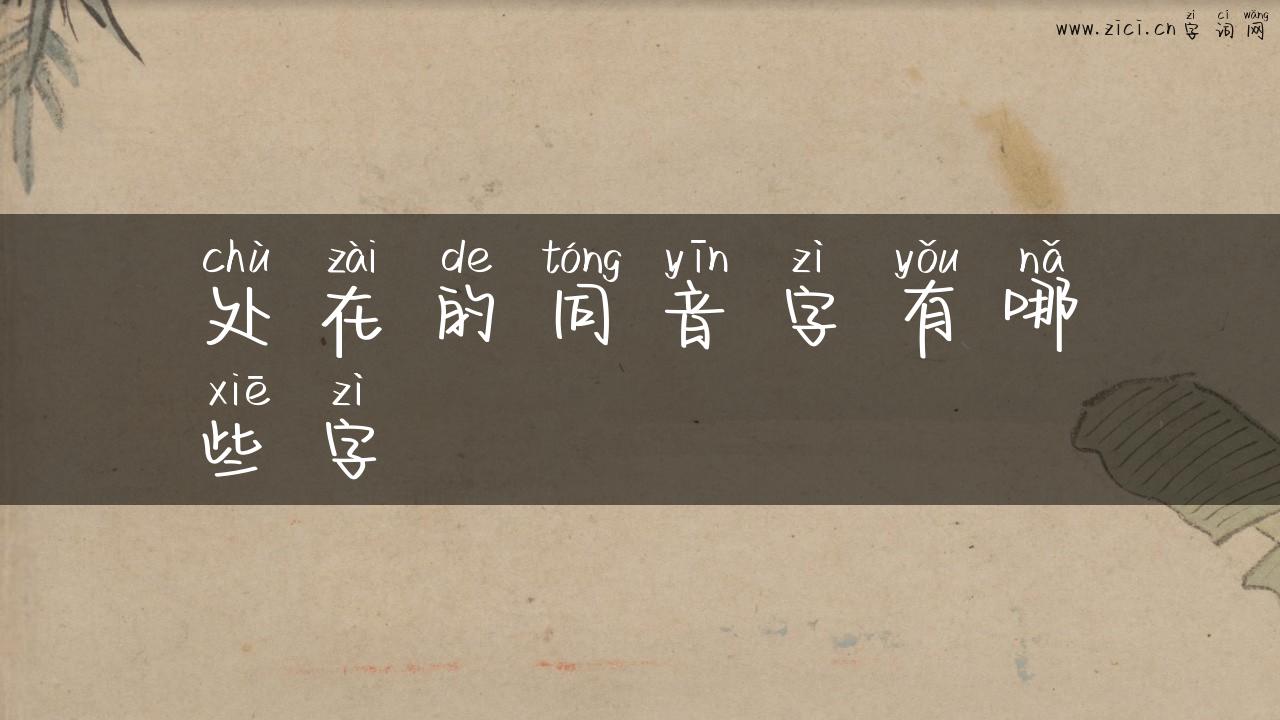 zì cí wǎng
www.zici.cn 字词网
chù zài de tóng yīn zì yǒu nǎ
处在的同音字有哪
xiē zì
些字